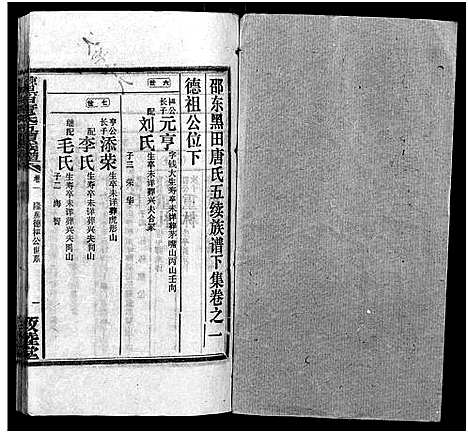 邵东黑田唐氏五续族谱下集卷之一
德祖公位下
六世
祖公长子 元亨 字钱大生寿卒未详葬茅嘴山丙山壬向
配 刘氏 生卒未详葬兴夫合冢
子二 荣 华
七世
亨公长子 添荣 生寿卒未详葬虎形山
配 李氏 生寿卒未详葬兴夫同山
继配 毛氏 生寿卒未详葬兴夫同山
子二 海 智
卷一 德祖公世系
一